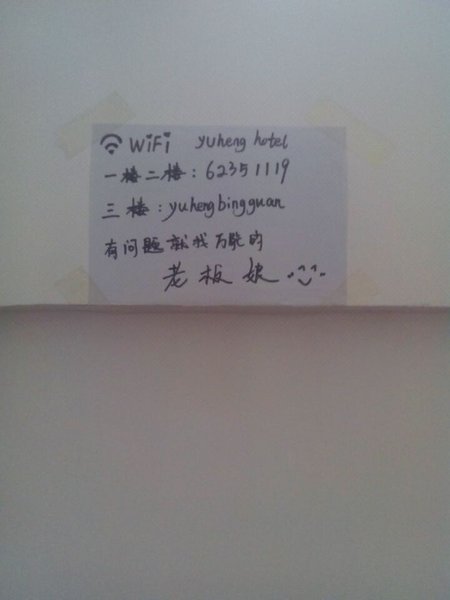 WiFi yuheng hotel
一楼二楼：62351119
三楼：yuhengbingguan
有问题就找万能的
老板娘